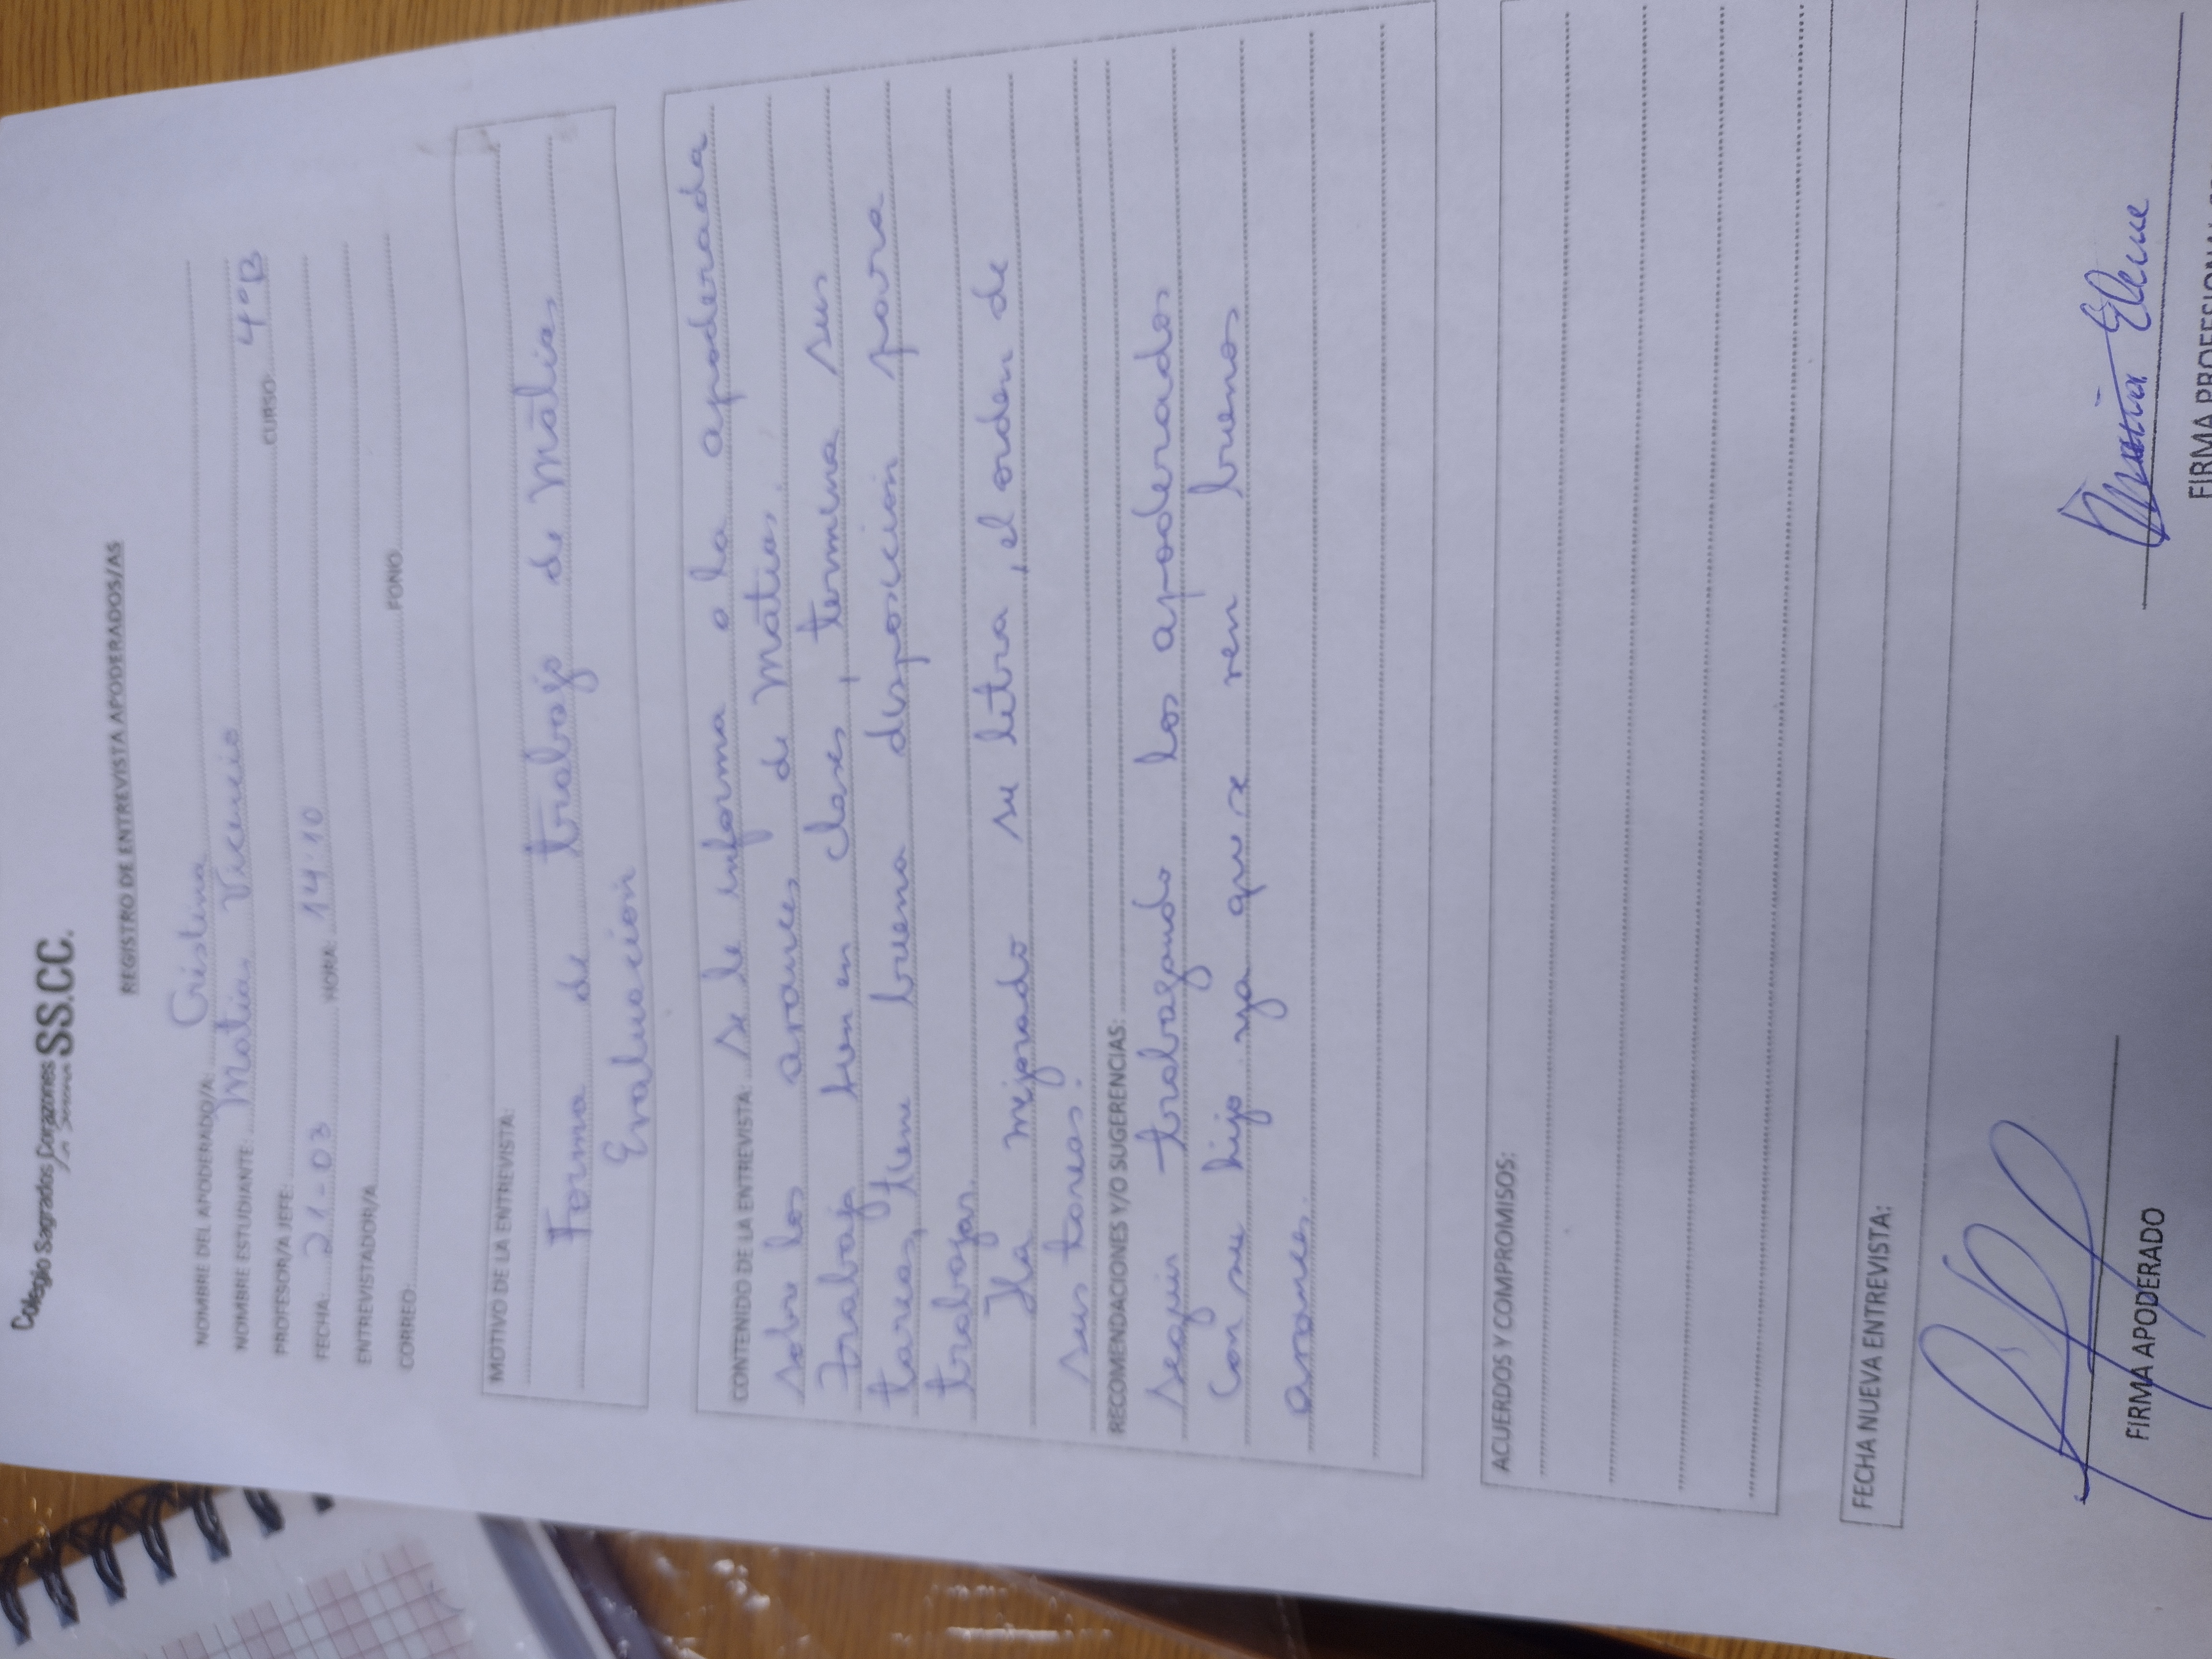 Colegio Sagrados Corazones SS.CC.
REGISTRO DE ENTREVISTA APODERADOS/AS
NOMBRE DEL APODERADO/A: Cristina
NOMBRE ESTUDIANTE: Matias Vicencio CURSO: 4°B
PROFESOR/A JEFE:
FECHA: 21-03 HORA: 14.10
ENTREVISTADOR/A
CORREO: FONO
MOTIVO DE LA ENTREVISTA:
Forma de trabajo de Matias
Evaluación
CONTENIDO DE LA ENTREVISTA: Se le informa a la apoderada
sobre los avances de Matias.
Trabaja bien en clases, termina sus
tareas, tiene buena disposición para
trabajar.
Ha mejorado su letra, el orden de
sus tareas.
RECOMENDACIONES Y/O SUGERENCIAS:
seguir trabajando los apoderados
con su hijo ya que se ven buenos
avances.
ACUERDOS Y COMPROMISOS:
FECHA NUEVA ENTREVISTA:
FIRMA APODERADO
FIRMA PROFESIONAL